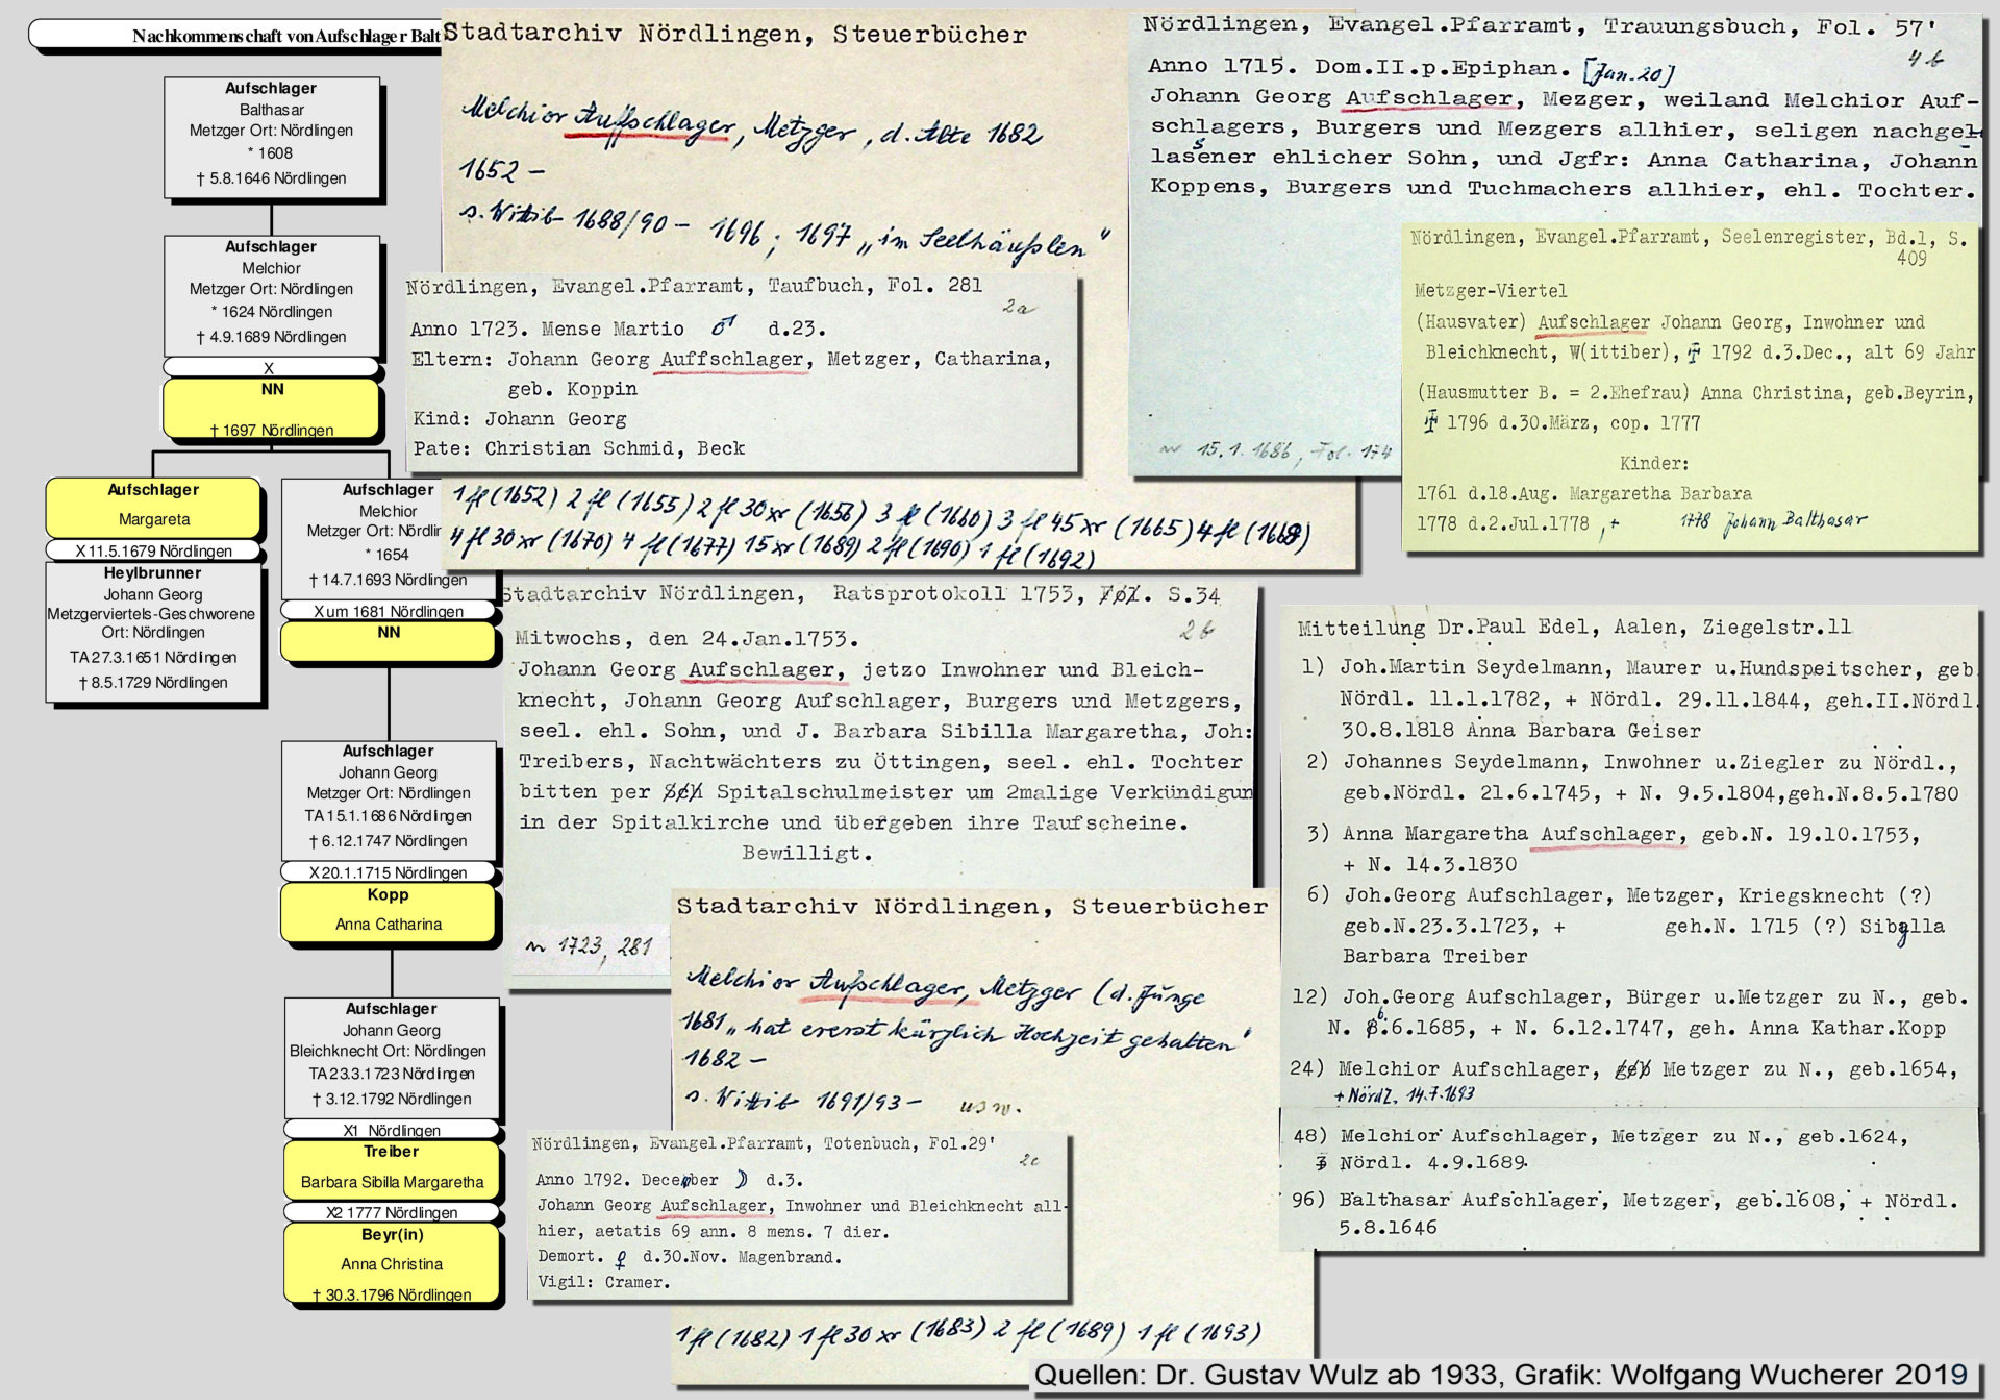 Nachkommenschaft von Aufschlager Balt
Aufschlager
Balthasar
Metzger Ort: Nördlingen
* 1608
† 5.8.1646 Nördlingen
Aufschlager
Melchior
Metzger Ort: Nördlingen
* 1624 Nördlingen
† 4.9.1689 Nördlingen
X
NN
† 1697 Nördlingen
Aufschlager
Margareta
X 11.5.1679 Nördlingen
Heylbrunner
Johann Georg
Metzgerviertels-Geschworene
Ort: Nördlingen
TA 27.3.1651 Nördlingen
† 8.5.1729 Nördlingen
Aufschlager
Melchior
Metzger Ort: Nördlir
* 1654
† 14.7.1693 Nördlingen
X um 1681 Nördlingen
NN
Aufschlager
Johann Georg
Metzger Ort: Nördlingen
TA 15.1.1686 Nördlingen
† 6.12.1747 Nördlingen
X 20.1.1715 Nördlingen
Kopp
Anna Catharina
Aufschlager
Johann Georg
Bleichknecht Ort: Nördlingen
TA 23.3.1723 Nördlingen
† 3.12.1792 Nördlingen
X1 Nördlingen
Treiber
Barbara Sibilla Margaretha
X2 1777 Nördlingen
Beyr(in)
Anna Christina
† 30.3.1796 Nördlingen
Stadtarchiv Nördlingen, Steuerbücher
Melchior Aufschlager, Metzger, d. Alte 1682
1652 –
s. Wittib 1688/90 – 1696; 1697 „im Seelhäuslen"
Nördlingen, Evangel.Pfarramt, Taufbuch, Fol. 281
2a
Anno 1723. Mense Martio ♂ d.23.
Eltern: Johann Georg Auffschlager, Metzger, Catharina,
geb. Koppin
Kind: Johann Georg
Pate: Christian Schmid, Beck
1 fl (1652) 2 fl (1655) 2 fl 30 xr (1658) 3 fl (1660) 3 fl 45 xr (1665) 4 fl (1668)
4 fl 30 xr (1670) 4 fl (1677) 15 xr (1689) 2 fl (1690) 1 fl (1692)
Stadtarchiv Nördlingen, Ratsprotokoll 1753, Fol. S.34
2b
Mitwochs, den 24.Jan.1753.
Johann Georg Aufschlager, jetzo Inwohner und Bleich-
knecht, Johann Georg Aufschlager, Burgers und Metzgers,
seel. ehl. Sohn, und J. Barbara Sibilla Margaretha, Joh:
Treibers, Nachtwächters zu Öttingen, seel. ehl. Tochter
bitten per Spitalschulmeister um 2malige Verkündigun
in der Spitalkirche und übergeben ihre Taufscheine.
Bewilligt.
1723, 281
Stadtarchiv Nördlingen, Steuerbücher
Melchior Aufschlager, Metzger (d. Junge
1681 „hat ererst kürzlich Hochzeit gehalten"
1682 –
s. Wittib 1691/93 – usw.
Nördlingen, Evangel.Pfarramt, Totenbuch, Fol.29'
2c
Anno 1792. December ☽ d.3.
Johann Georg Aufschlager, Inwohner und Bleichknecht all-
hier, aetatis 69 ann. 8 mens. 7 dier.
Demort. ♀ d.30.Nov. Magenbrand.
Vigil: Cramer.
1 fl (1682) 1 fl 30 xr (1683) 2 fl (1689) 1 fl (1693)
Nördlingen, Evangel.Pfarramt, Trauungsbuch, Fol. 57'
4b
Anno 1715. Dom.II.p.Epiphan. [Jan.20]
Johann Georg Aufschlager, Mezger, weiland Melchior Auf-
schlagers, Burgers und Mezgers allhier, seligen nachgel
lasener ehlicher Sohn, und Jgfr: Anna Catharina, Johann
s
Koppens, Burgers und Tuchmachers allhier, ehl. Tochter.
15.1.1686, Fol. 174
Nördlingen, Evangel.Pfarramt, Seelenregister, Bd.1, S.
409
Metzger-Viertel
(Hausvater) Aufschlager Johann Georg, Inwohner und
Bleichknecht, W(ittiber), † 1792 d.3.Dec., alt 69 Jahr
(Hausmutter B. = 2.Ehefrau) Anna Christina, geb.Beyrin,
† 1796 d.30.März, cop. 1777
Kinder:
1761 d.18.Aug. Margaretha Barbara
1778 d.2.Jul.1778 ,+ 1778 Johann Balthasar
Mitteilung Dr.Paul Edel, Aalen, Ziegelstr.11
1) Joh.Martin Seydelmann, Maurer u.Hundspeitscher, geb.
Nördl. 11.1.1782, + Nördl. 29.11.1844, geh.II.Nördl.
30.8.1818 Anna Barbara Geiser
2) Johannes Seydelmann, Inwohner u.Ziegler zu Nördl.,
geb.Nördl. 21.6.1745, + N. 9.5.1804,geh.N.8.5.1780
3) Anna Margaretha Aufschlager, geb.N. 19.10.1753,
+ N. 14.3.1830
6) Joh.Georg Aufschlager, Metzger, Kriegsknecht (?)
geb.N.23.3.1723, + geh.N. 1715 (?) Sibylla
Barbara Treiber
12) Joh.Georg Aufschlager, Bürger u.Metzger zu N., geb.
N. 6.6.1685, + N. 6.12.1747, geh. Anna Kathar.Kopp
24) Melchior Aufschlager, Metzger zu N., geb.1654,
+ Nördl. 14.7.1693
48) Melchior Aufschlager, Metzger zu N., geb.1624,
‡ Nördl. 4.9.1689.
96) Balthasar Aufschlager, Metzger, geb.1608, + Nördl.
5.8.1646
Quellen: Dr. Gustav Wulz ab 1933, Grafik: Wolfgang Wucherer 2019